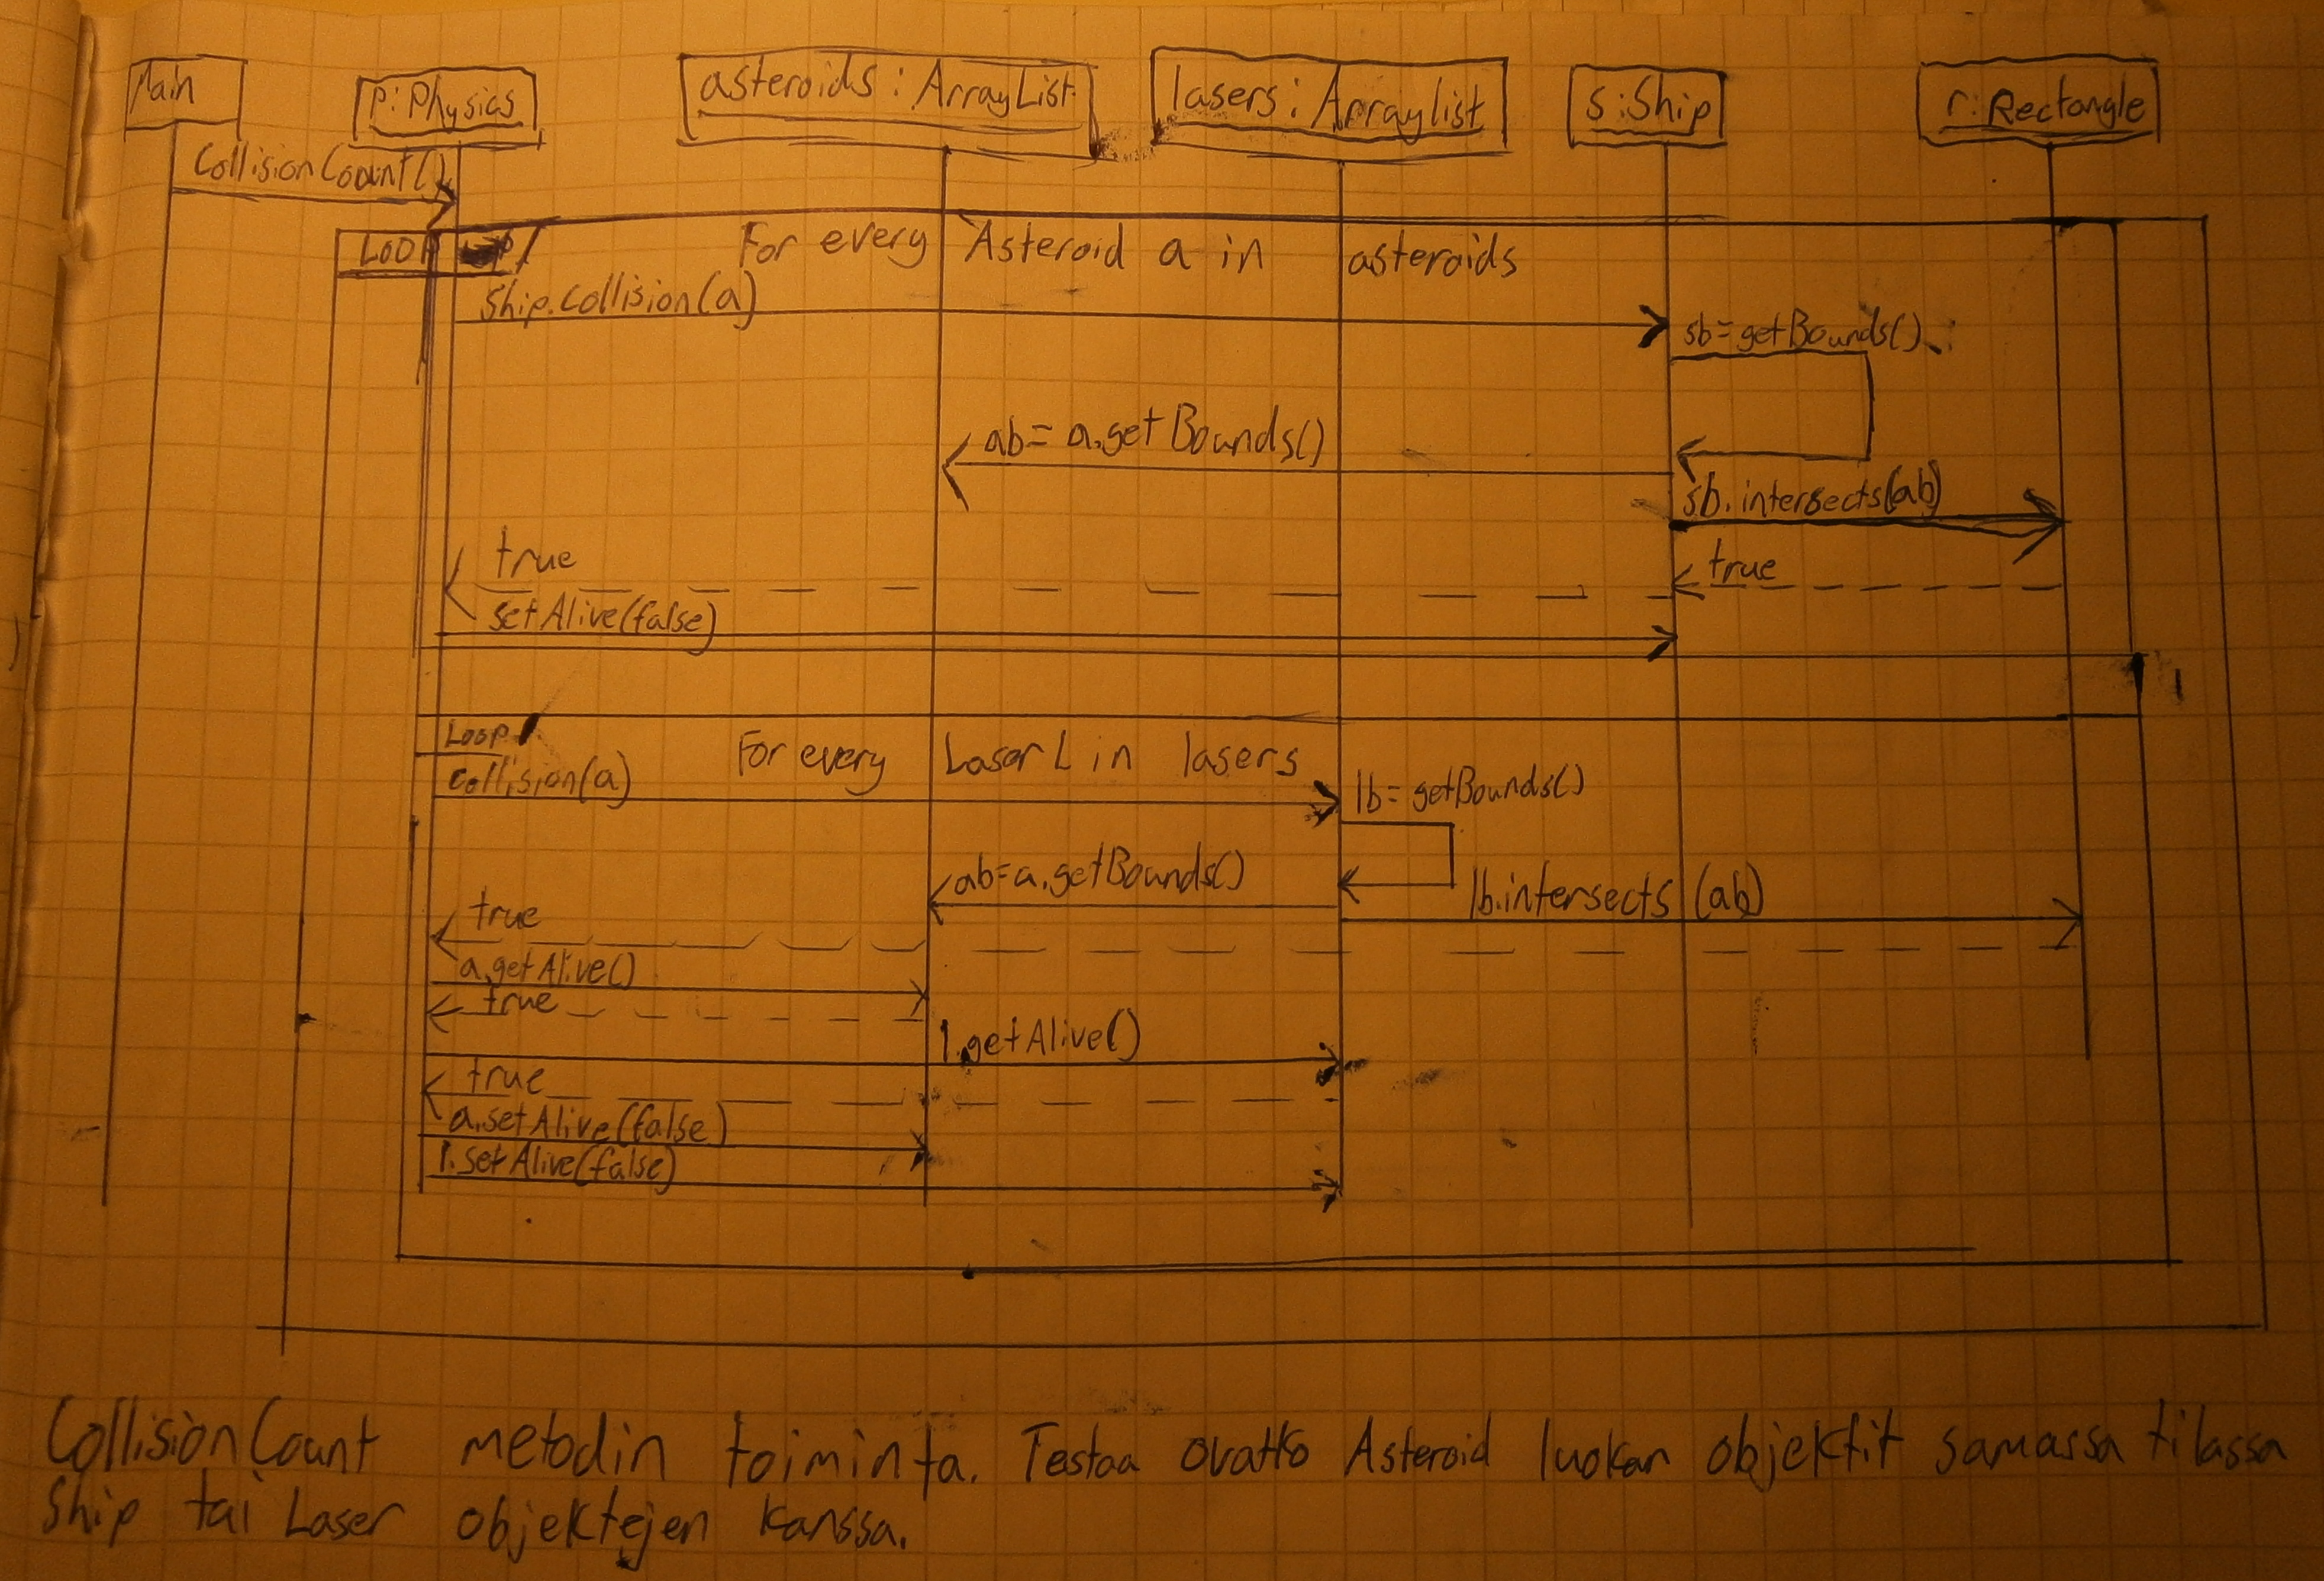 Main
p:Physics
asteroids:ArrayList
lasers:Arraylist
s:Ship
r:Rectangle
CollisionCount()
LOOP
For every Asteroid a in asteroids
Ship.Collision(a)
sb=getBounds()
ab= a.getBounds()
sb.intersects(ab)
true
true
setAlive(false)
Loop
For every Laser L in lasers
collision(a)
lb=getBounds()
ab=a.getBounds()
lb.intersects (ab)
true
a.getAlive()
true
l.getAlive()
true
a.setAlive(false)
l.setAlive(false)
CollisionCount metodin toiminta. Testaa ovatko Asteroid luokan objektit samassa tilassa
Ship tai Laser objektejen kanssa.